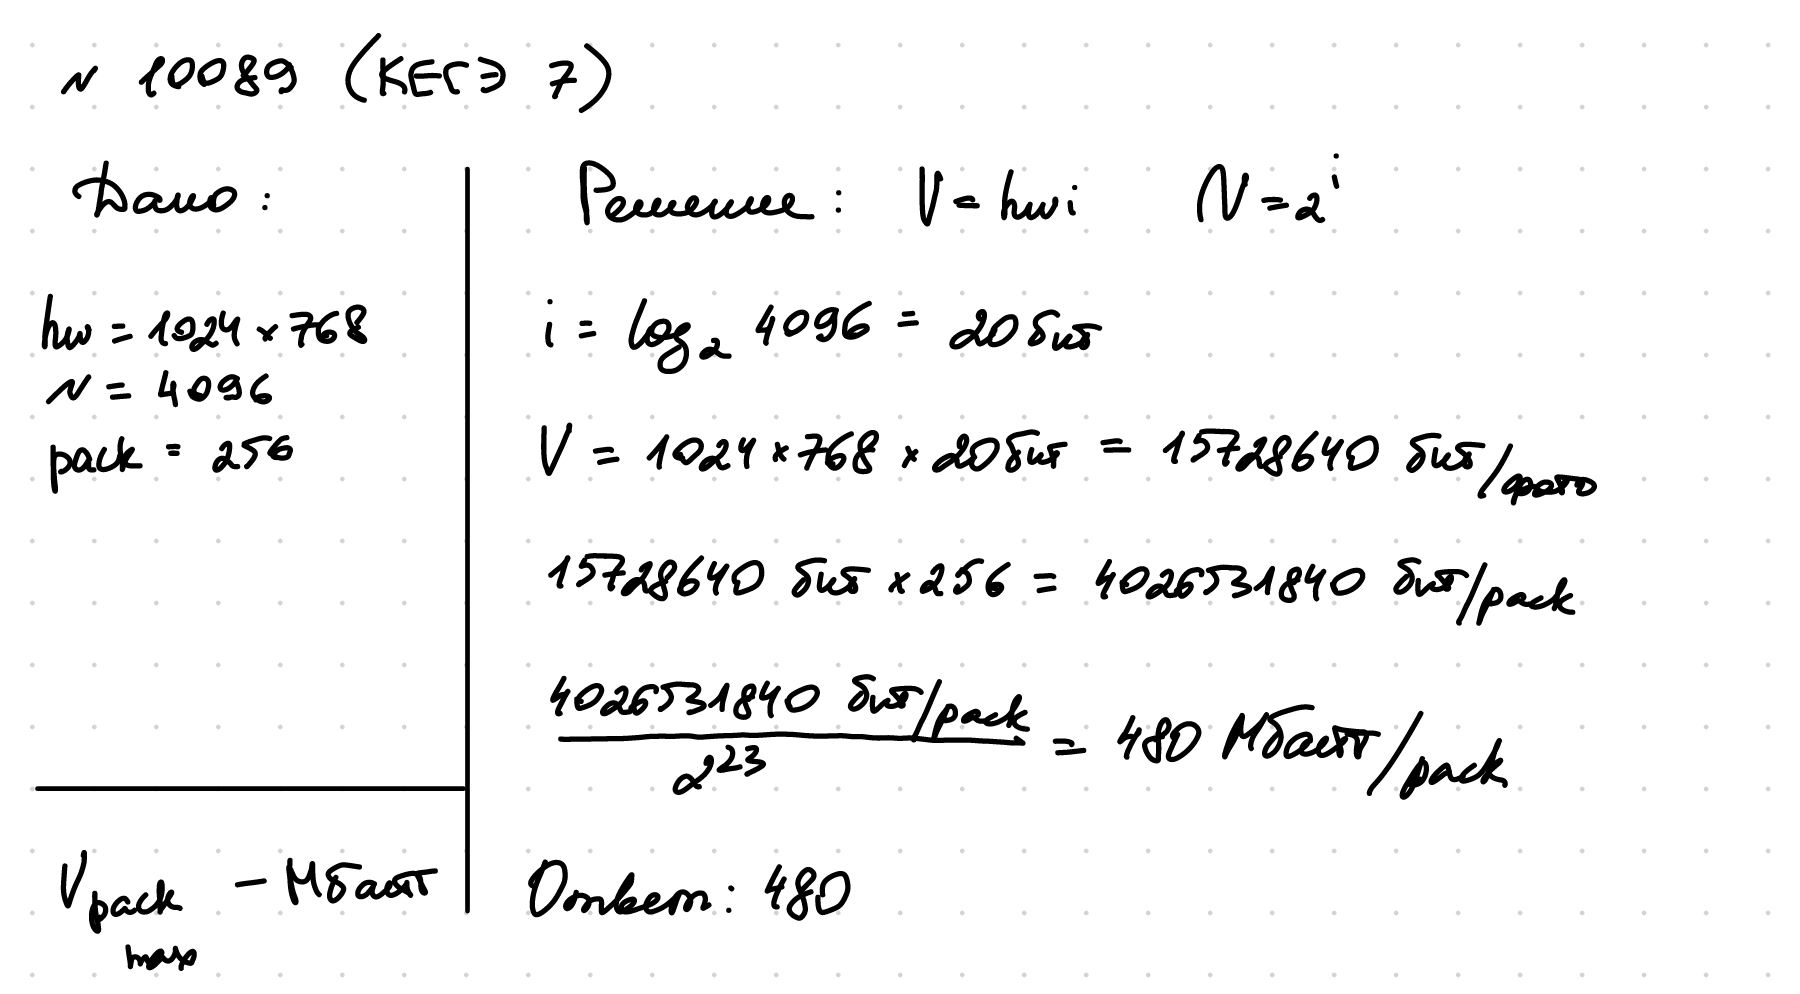 № 10089 (КЕГЭ 7)
Дано:
hw = 1024 × 768
N = 4096
pack = 256
V pack max - Мбайт
Решение: V = hwi N = 2^i
i = log₂ 4096 = 20 бит
V = 1024 × 768 × 20 бит = 15728640 бит/фото
15728640 бит × 256 = 4026531840 бит/pack
4026531840 бит/pack
2²³
= 480 Мбайт/pack
Ответ: 480